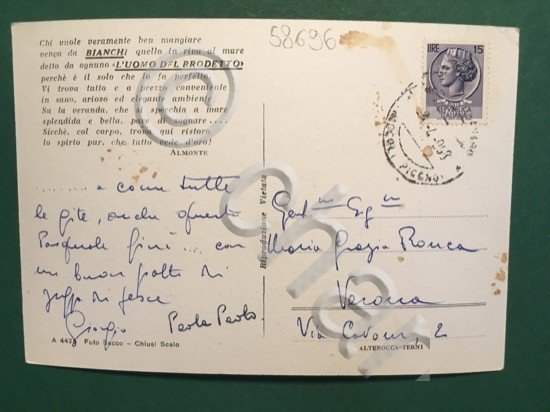 58696
Chi vuole veramente ben mangiare
venga da BIANCHI quello in riva al mare
detto da ognuno «L'UOMO DEL BRODETTO»
perchè è il solo che lo fa perfetto.
Vi trova tutto e a prezzo conveniente
in sano, arioso ed elegante ambiente.
Su la veranda, che si specchia a mare
splendida e bella, pare di sognare....
Sicchè, col corpo, trova sul ristoro
lo spirto pur, che tutto vede d'oro!
ALMONTE
LIRE 15
PICENO
......... e come tutte
le gite, anche questa
Pasquale finì... con
un buon piatto di
zuppa di pesce
Giorgio Paola Paolo
Riproduzione Vietata
Gent.ma Sig.na
Maria Grazia Ronca
Verona
Via Cavour, 2
A 4475 Foto Sacco - Chiusi Scalo
ALTEROCCA-TERNI
©